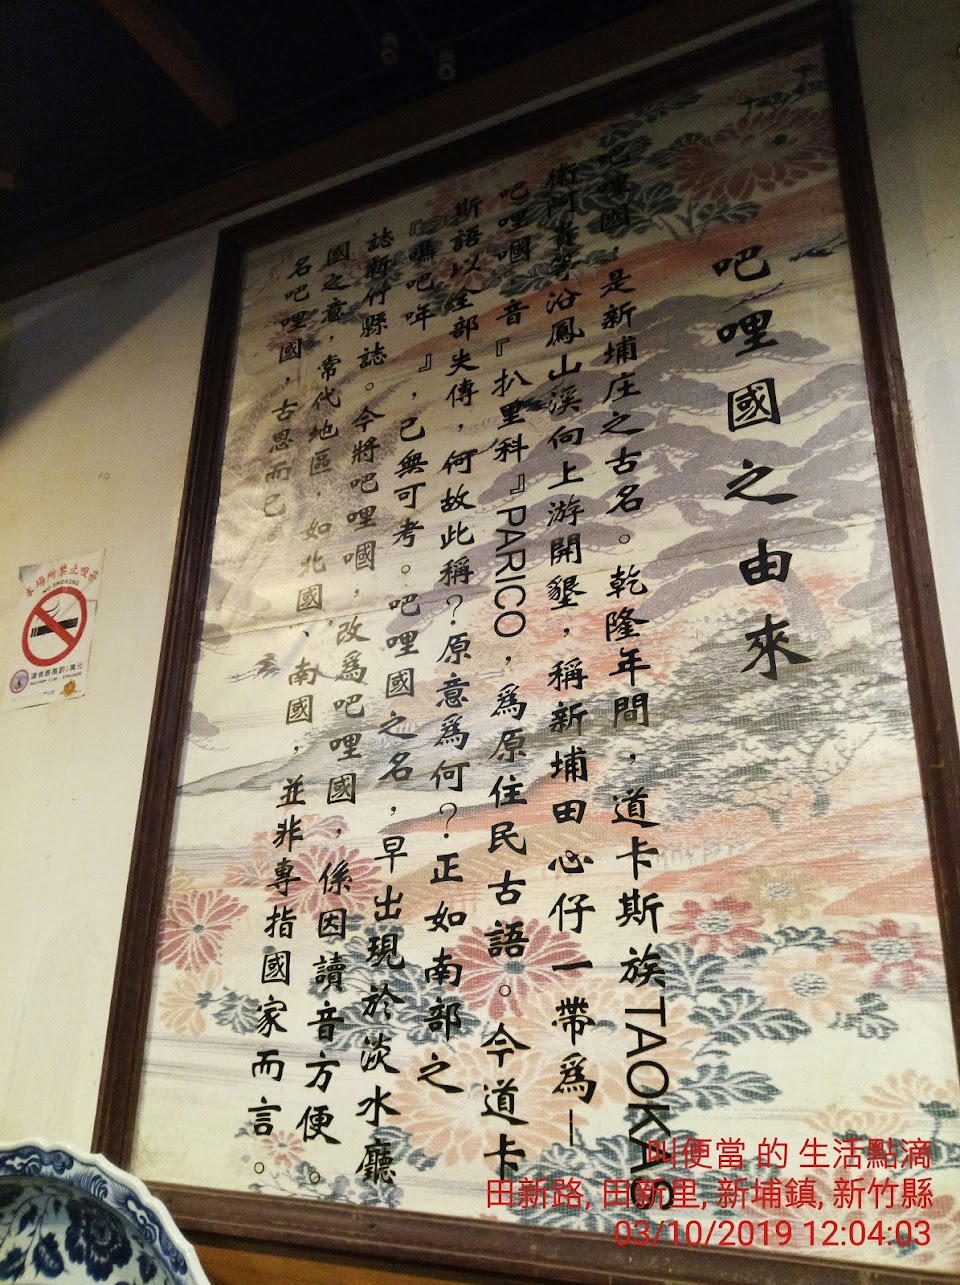 吧哩國之由來
吧哩國，是新埔庄之古名。乾隆年間，道卡斯族TAOKAS
衛阿貴等沿鳳山溪向上游開墾，稱新埔田心仔一帶爲—
吧哩嘓 音『扒里科』PARICO，爲原住民古語。今道卡
斯語以全部失傳，何故此稱？原意爲何？正如南部之
『噍吧哖』，已無可考。吧哩國之名，早出現於淡水廳
誌新竹縣誌。今將吧哩嘓，改爲吧哩國，係因讀音方便。
國之意，常代地區，如北國、南國，並非專指國家而言。
名吧哩國，古思而已。
本場所禁止吸菸
NO SMOKING
叫便當 的 生活點滴
田新路, 田新里, 新埔鎮, 新竹縣
03/10/2019 12:04:03